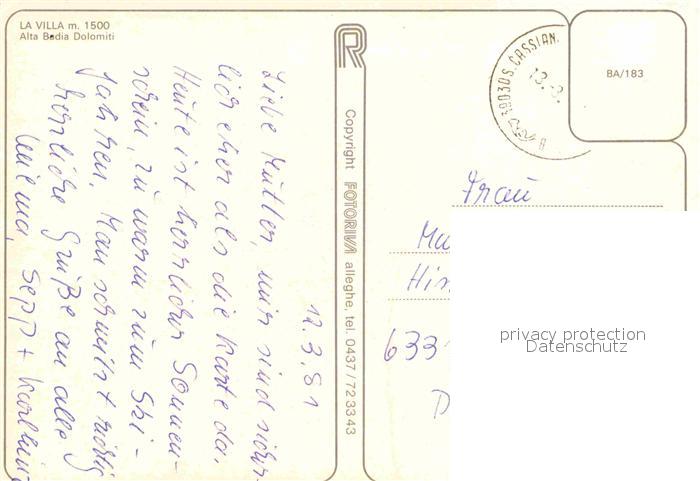 LA VILLA m. 1500
Alta Badia Dolomiti
12.3.81
Liebe Mutter, wir sind sicher
lich eher als die Karte da.
Heute ist herrlicher Sonnen-
schein, zu warm zum Ski-
fahren. Man schwitzt richtig
herzliche Grüße an alle
Sepp +
R
Copyright FOTORIVA alleghe, tel. 0437/723343
39030 S. CASSIAN
13.-3.
BA/183
Frau
633
D
privacy protection
Datenschutz